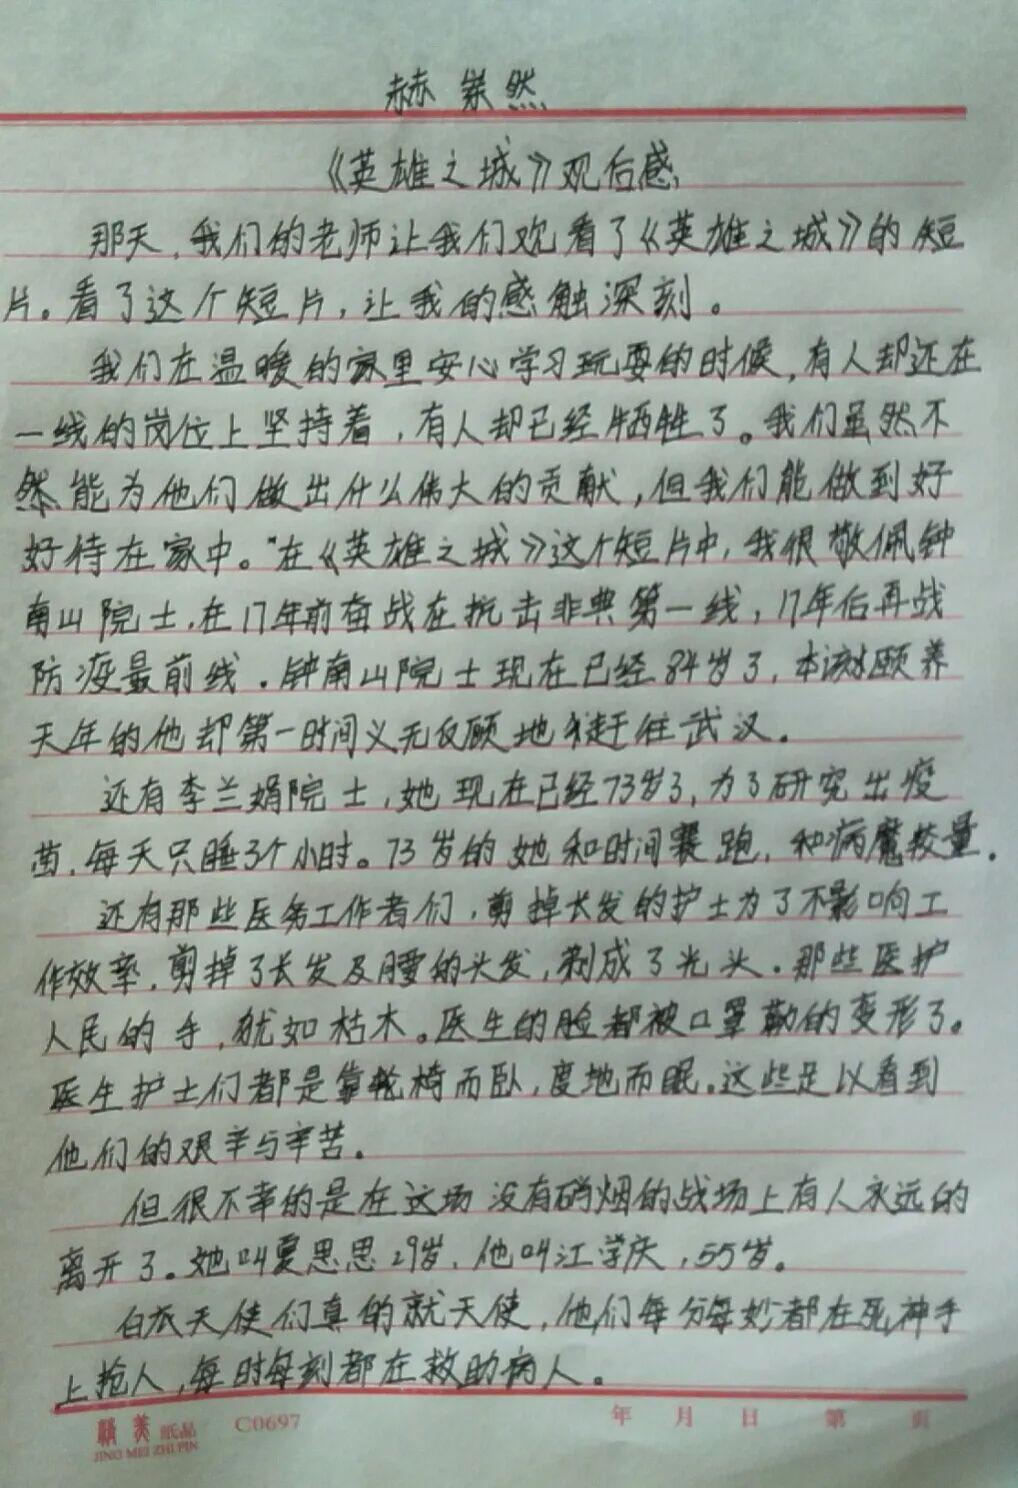 赫 然
《英雄之城》观后感
那天,我们的老师让我们欢看了《英雄之城》的短
片。看了这个短片,让我的感触深刻。
我们在温暖的家里安心学习玩耍的时候,有人却还在
一线的岗位上坚持着,有人却已经牺牲了。我们虽然不
然能为他们做出什么伟大的贡献,但我们能做到好
好待在家中。"在《英雄之城》这个短片中,我很敬佩钟
南山院士,在17年前奋战在抗击非典第一线,17年后再战
防疫最前线.钟南山院士现在已经84岁了,本该颐养
天年的他却第一时间义无反顾地赶往武汉.
还有李兰娟院士,她现在已经73岁了,为了研究出疫
苗,每天只睡3个小时。73岁的她和时间赛跑,和病魔较量.
还有那些医务工作者们,剪掉长发的护士为了不影响工
作效率,剪掉了长发及腰的头发,剃成了光头.那些医护
人民的手,犹如枯木。医生的脸都被口罩勒的变形了。
医生护士们都是靠轮椅而卧,度地而眠.这些足以看到
他们的艰辛与辛苦.
但很不幸的是在这场没有硝烟的战场上有人永远的
离开了。她叫夏思思29岁,他叫江学庆,55岁。
白衣天使们真的就天使,他们每分每妙都在死神手
上抢人,每时每刻都在救助病人.
精美纸品 C0697 年 月 日 第 页
JING MEI ZHI PIN